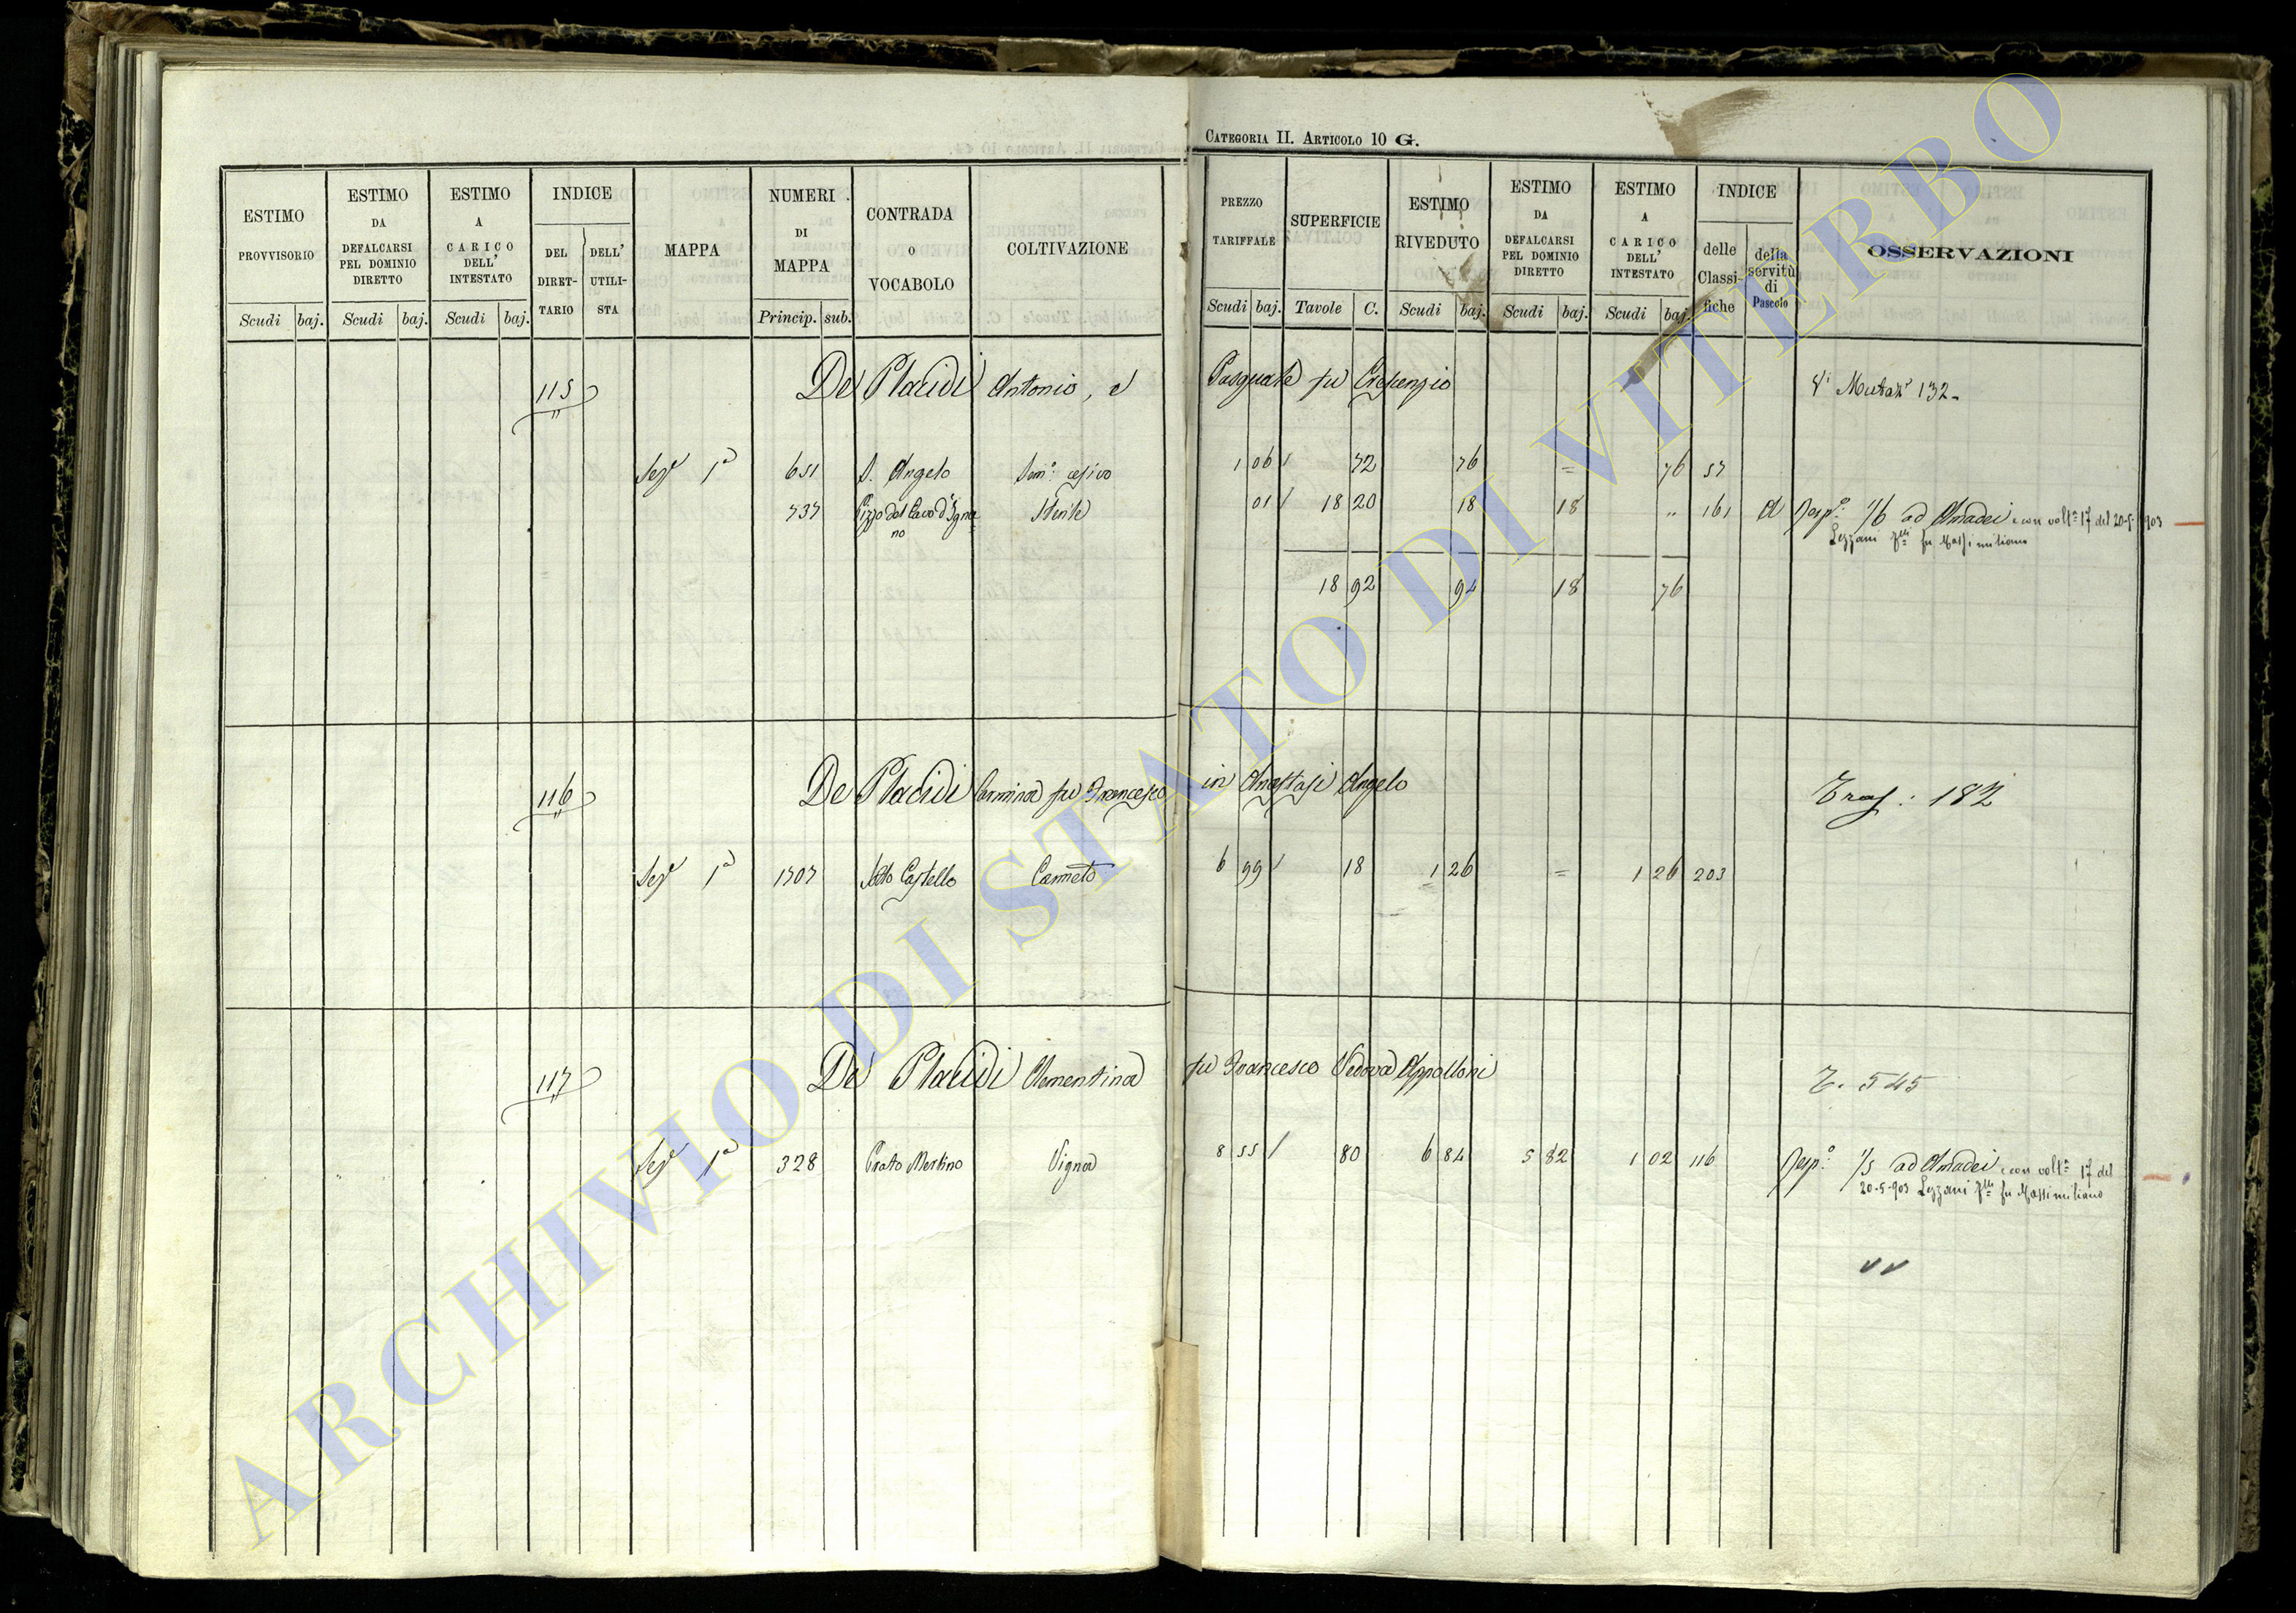 CATEGORIA II. ARTICOLO 10 G.
ESTIMO PROVVISORIO Scudi baj.
ESTIMO DA DEFALCARSI PEL DOMINIO DIRETTO Scudi baj.
ESTIMO A CARICO DELL' INTESTATO Scudi baj.
INDICE DEL DIRETTARIO DELL' UTILISTA
MAPPA
NUMERI DI MAPPA Princip. sub.
CONTRADA O VOCABOLO
COLTIVAZIONE
PREZZO TARIFFALE Scudi baj.
SUPERFICIE Tavole C.
ESTIMO RIVEDUTO Scudi baj.
ESTIMO DA DEFALCARSI PEL DOMINIO DIRETTO Scudi baj.
ESTIMO A CARICO DELL' INTESTATO Scudi baj.
INDICE delle Classifiche della servitù di Pascolo
OSSERVAZIONI
115 De Placidi Antonio, e Pasquale fu Crescenzio 132
Sez.e 1a 651 S. Angelo Sem.o cesivo 1 06 72 76 = 76 57
737 Pizzo del Cavo d'Ignano Sterile 01 18 20 18 18 " 161 A Resp.o 1/6 ad Amadei e con volt.a 17 del 20-5-903
Lezzani fu Massimiliano
18 92 94 18 76
116 De Placidi Carmina fu Francesco in Anastasi Angelo Tras: 182
Sez.e 1a 1707 Sotto Castello Canneto 6 99 18 1 26 = 1 26 203
117 De Placidi Clementina fu Francesco Vedova Appolloni T. 545
Sez.e 1a 328 Prato Martino Vigna 8 55 80 6 84 5 82 1 02 116 Resp.o 1/5 ad Amadei e con volt.a 17 del
20-5-903 Lezzani fu Massimiliano
ARCHIVIO DI STATO DI VITERBO